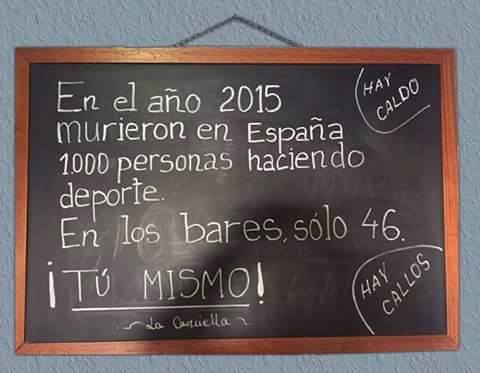 En el año 2015
murieron en España
1.000 personas haciendo
deporte.
En los bares, sólo 46.
¡TÚ MISMO!
La
HAY
CALDO
HAY
CALLOS